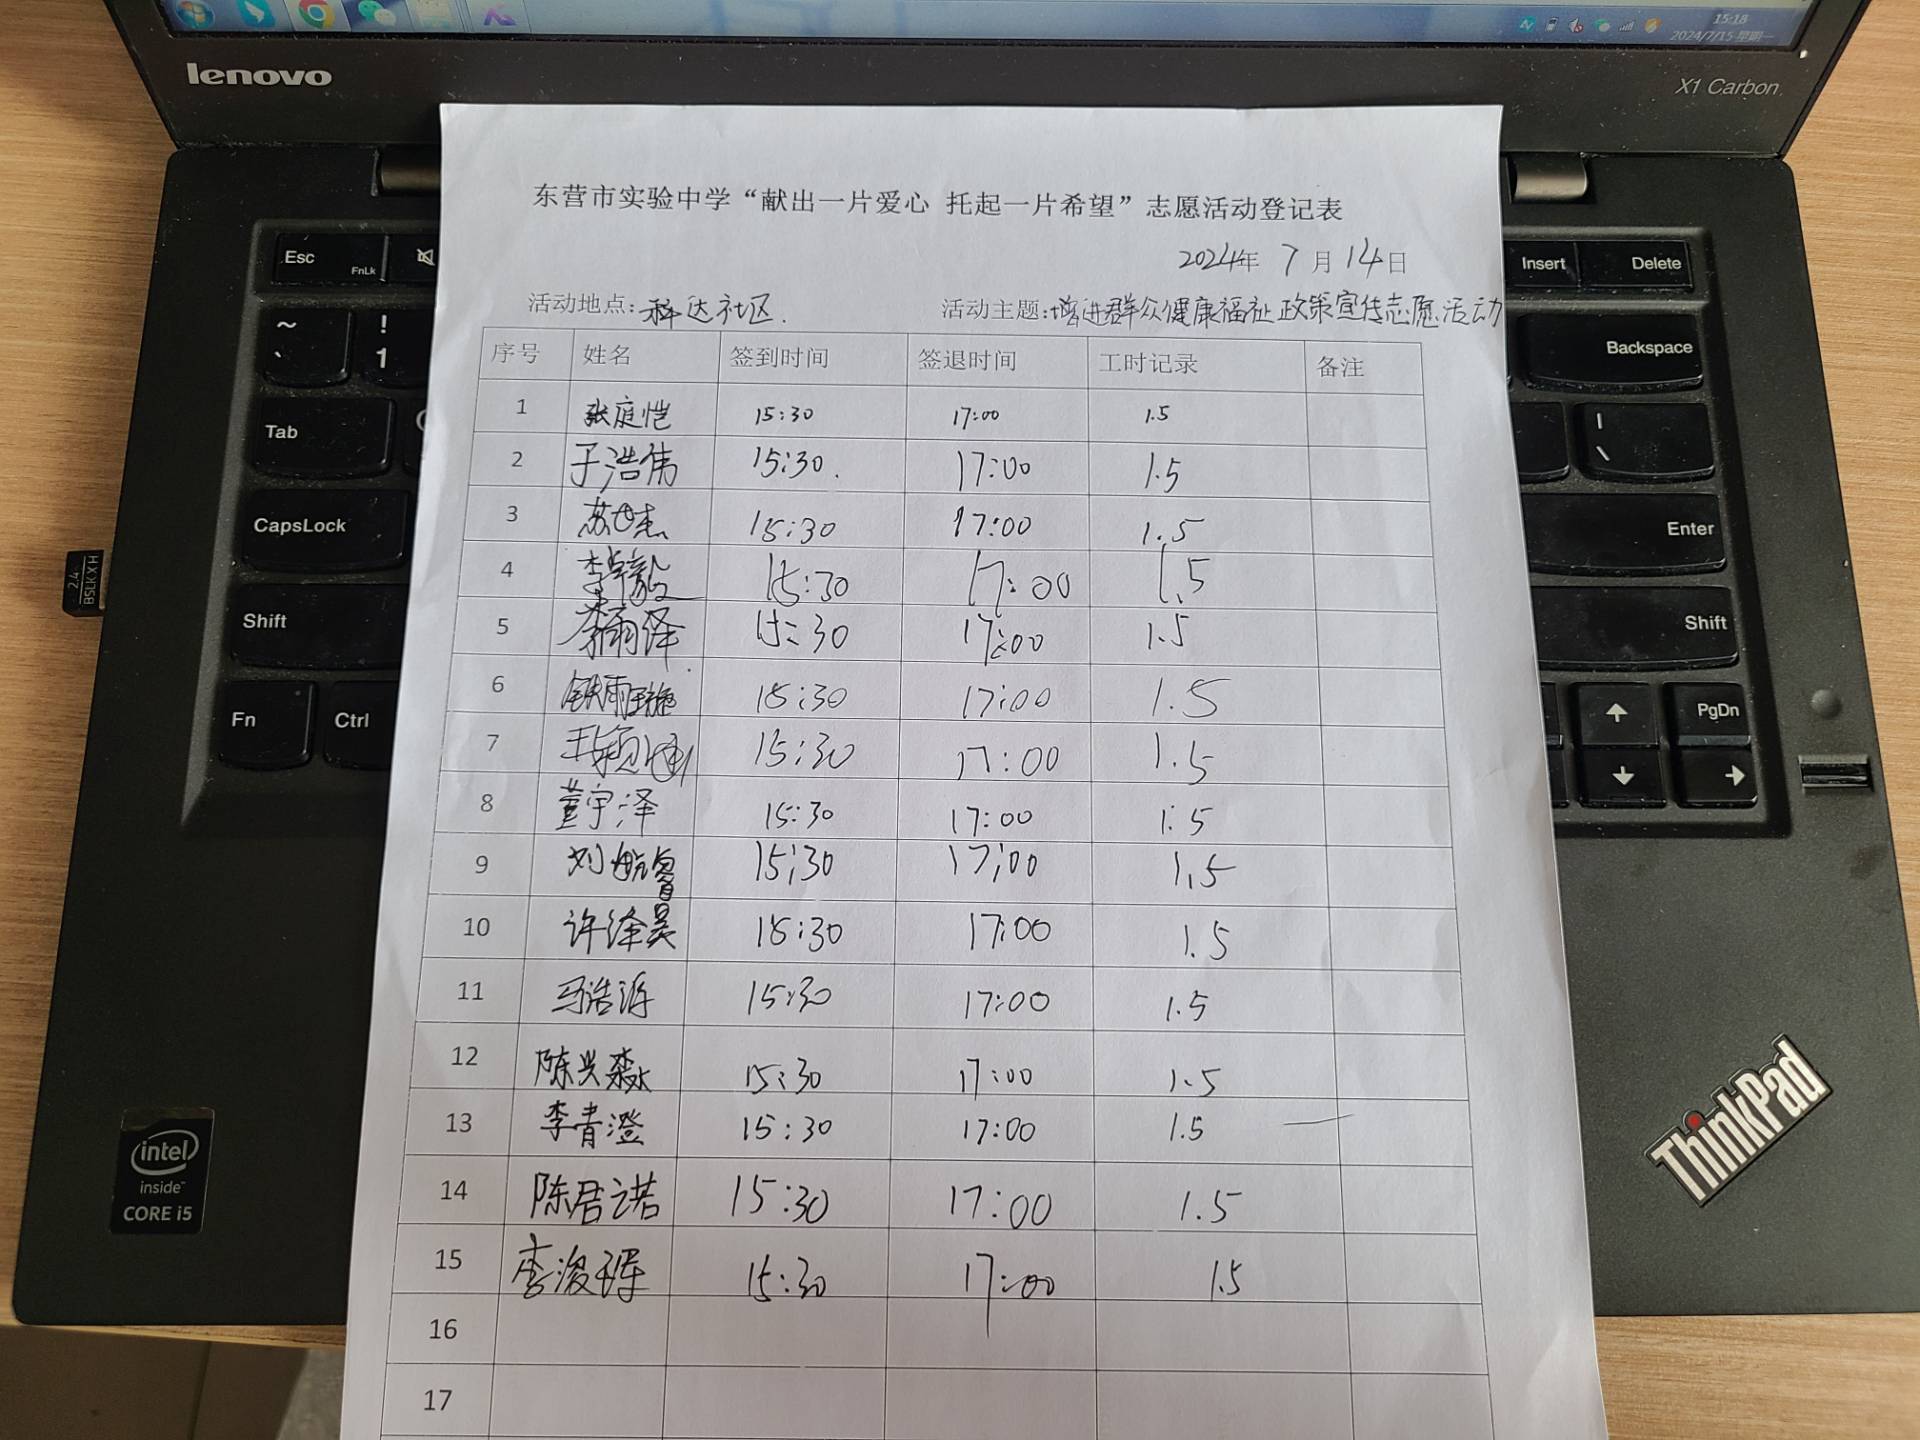 15:18
2024/7/15 星期一
lenovo
X1 Carbon
东营市实验中学“献出一片爱心 托起一片希望”志愿活动登记表
2024年 7月14日
活动地点:科达社区. 活动主题:增进群众健康福祉政策宣传志愿活动
序号 姓名 签到时间 签退时间 工时记录 备注
1 张庭恺 15:30 17:00 1.5
2 于浩伟 15:30. 17:00 1.5
3 苏世杰 15:30 17:00 1.5
4 李宇毅 15:30 17:00 1.5
5 李雨泽 15:30 17:00 1.5
6 15:30 17:00 1.5
7 15:30 17:00 1.5
8 董宇泽 15:30 17:00 1.5
9 刘航睿 15:30 17:00 1.5
10 许泽昊 15:30 17:00 1.5
11 马浩 15:30 17:00 1.5
12 陈兴淼 15:30 17:00 1.5
13 李青澄 15:30 17:00 1.5
14 陈君诺 15:30 17:00 1.5
15 李浚琿 15:30 17:00 1.5
16
17
Esc FnLk
~ ` ! 1
Tab
CapsLock
Shift
Fn Ctrl
Insert Delete
Backspace
| \
Enter
Shift
PgDn
2.4 BSLKXH
intel inside CORE i5
ThinkPad